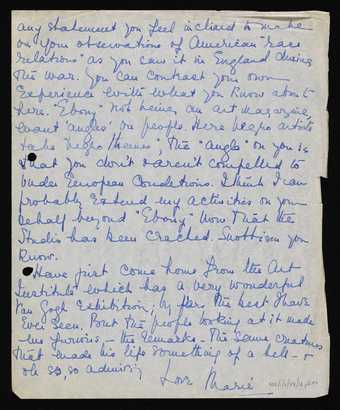 any statement you feel inclined to make
on your observations of American "Race
relations" as you saw it in England during
the war. You can contrast your own
experience with what you know about
here. "Ebony" not being an art magazine
want 'angles' on people. Here negro artists
take "negro themes", The "angle" on you is
that you don't & aren't compelled to
under European Conditions. I think I can
probably extend my activities on your
behalf beyond "Ebony" now that the
Studio has been cracked. Snobbism you
know.
Have just come home from the Art
Institute which has a very wonderful
Van Gogh Exhibition, by far the best I have
ever seen. But the people looking at it made
me furious, – the remarks – The same creatures
that made his life something of a hell – &
oh so, so admiring
Love Marie